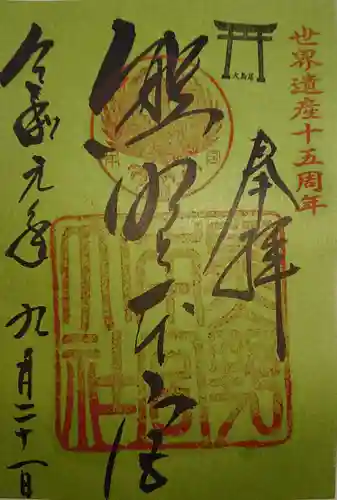 世界遺産十五周年
大斎原
奉拝
熊野本宮
熊野
本宮
大社
令和元年 九月二十一日